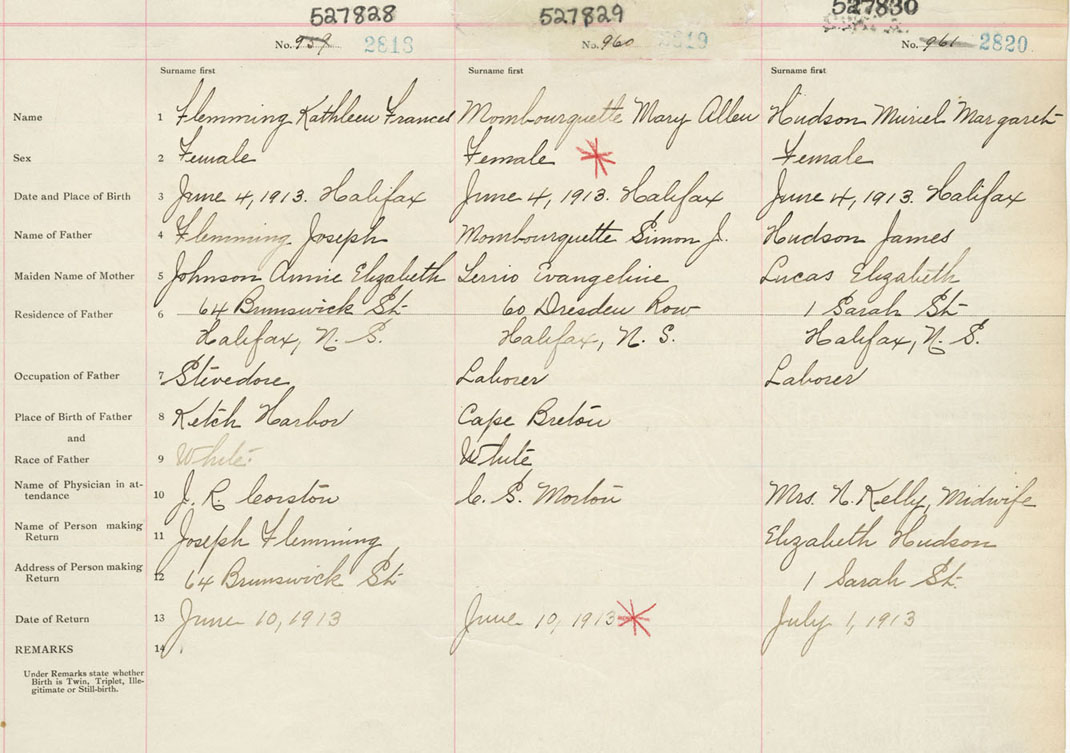 527828 527829 527830
No. 959 2818 No. 960 2819 No. 961 2820
Surname first Surname first Surname first
Name 1 Flemming Kathleen Frances Mombourquette Mary Allen Hudson Muriel Margaret
Sex 2 Female Female Female
Date and Place of Birth 3 June 4, 1913. Halifax June 4, 1913. Halifax June 4, 1913. Halifax
Name of Father 4 Flemming Joseph Mombourquette Simon J. Hudson James
Maiden Name of Mother 5 Johnson Annie Elizabeth Evangeline Lucas Elizabeth
Residence of Father 6 64 Brunswick St 60 Dresden Row 1 Sarah St
Halifax, N. S. Halifax, N. S. Halifax, N. S.
Occupation of Father 7 Stevedore Laborer Laborer
Place of Birth of Father 8 Ketch Harbor Cape Breton
and
Race of Father 9 White White
Name of Physician in at-
tendance 10 J. R. Corston C. S. Morton Mrs. N. Kelly, Midwife
Name of Person making
Return 11 Joseph Flemming Elizabeth Hudson
Address of Person making
Return 12 64 Brunswick St 1 Sarah St.
Date of Return 13 June 10, 1913 June 10, 1913 July 1, 1913
REMARKS 14
Under Remarks state whether
Birth is Twin, Triplet, Ille-
gitimate or Still-birth.